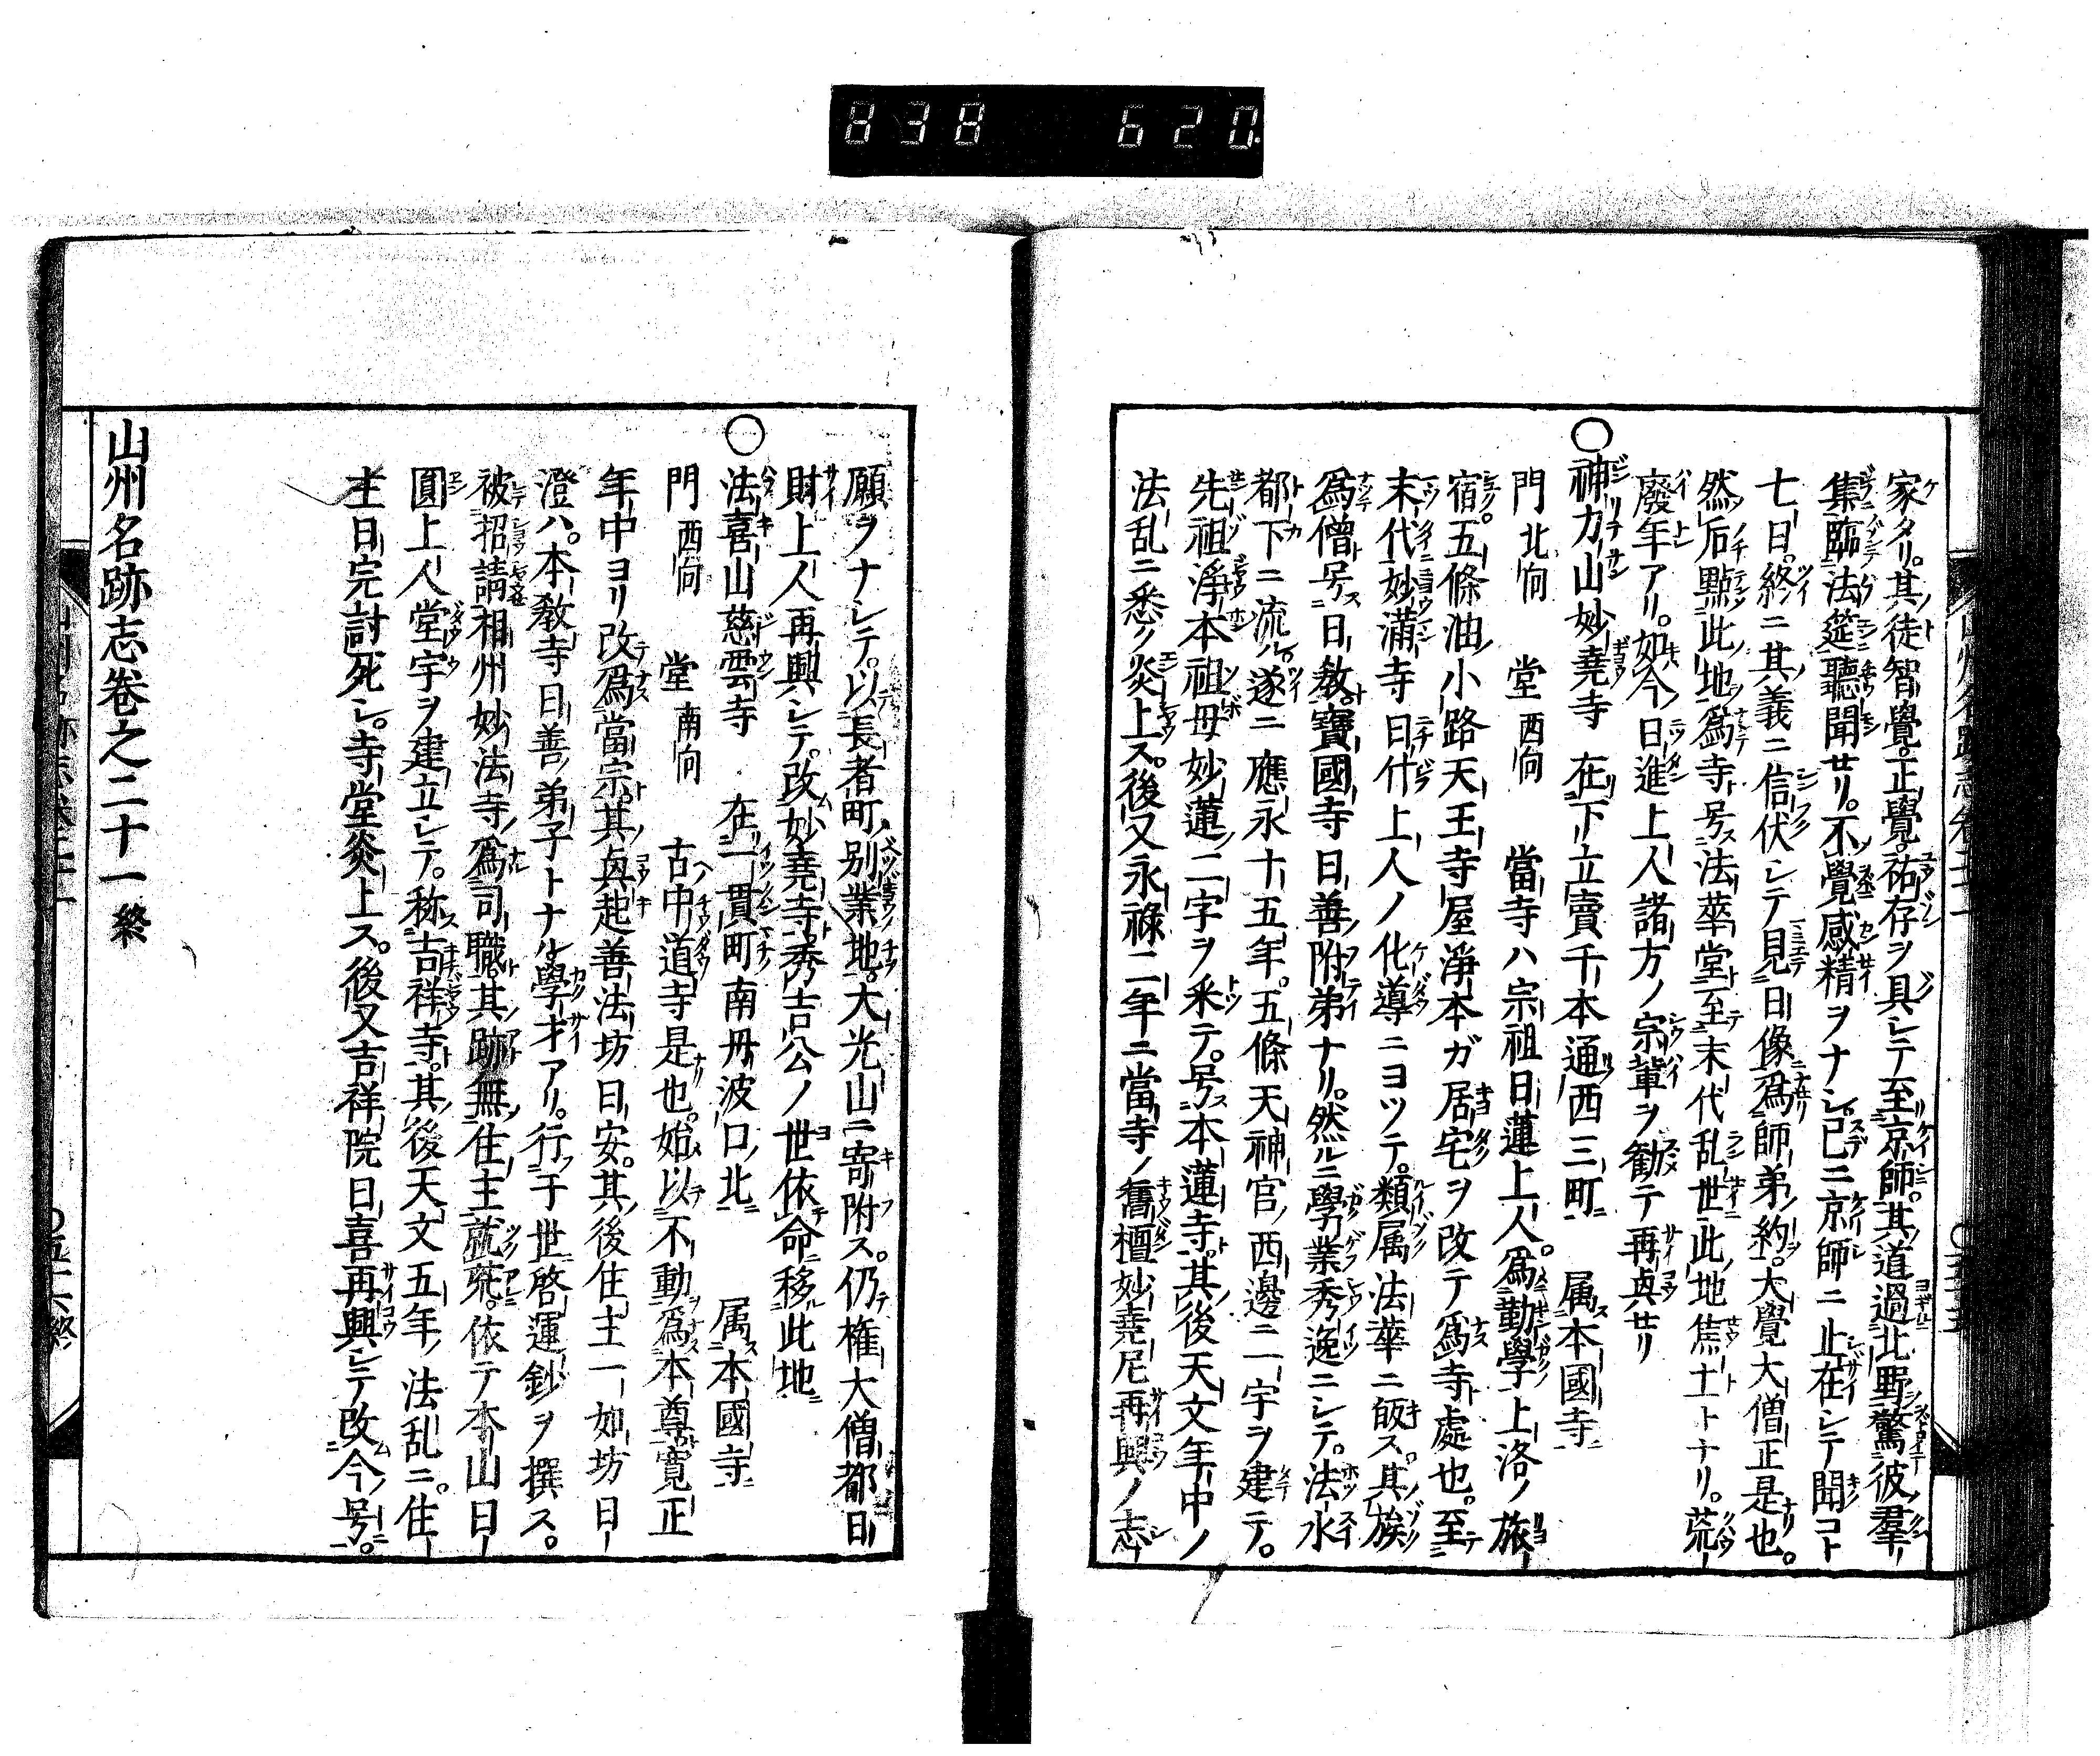 838 620
家タリ。其徒智覺。正覺。祐存ヲ具シテ至京師。其道過北野驚彼羣
集臨法筵聽聞セリ。不覺感精ヲナシ。已ニ京師ニ止在シテ聞コト
七日。終ニ其義ニ信伏シテ見日像爲師弟約。大覺大僧正是也。
然后點此地爲寺号法華堂至末代乱世此地焦土トナリ。荒
廢年アリ。如今日進上人諸方ノ宗輩ヲ勧テ再興セリ
〇神力山妙堯寺 在下立賣千本通西三町 属本國寺
門北向 堂西向 當寺ハ宗祖日蓮上人。爲勤學上洛ノ旅
宿。五條油小路天王寺屋淨本ガ居宅ヲ改テ爲寺處也。至
末代妙滿寺日什上人ノ化導ニヨツテ。類属法華ニ皈ス。其族
爲僧号日教。寶國寺日善附弟ナリ。然ルニ學業秀逸ニシテ。法水
都下ニ流ル。遂ニ應永十五年。五條天神官西邊ニ一宇ヲ建テ。
先祖淨本祖母妙蓮ノ二字ヲ釆テ。号本蓮寺。其後天文年中ノ
法乱ニ悉ク炎上ス。後又永祿二年ニ當寺ノ舊檀妙堯尼再興ノ志
願ヲナシテ。以長者町別業地。大光山ニ寄附ス。仍権大僧都日
財上人再興シテ。改妙堯寺。秀吉公ノ世依命移此地
〇法喜山慈雲寺 在一貫町南丹波口北 属本國寺
門西向 堂南向 古中道寺是也。始以不動爲本尊。寛正
年中ヨリ改爲當宗。其興起善法坊日安。其後住主一如坊日
澄ハ。本教寺日善弟子トナル學才アリ。行于世啓運鈔ヲ撰ス。
被招請相州妙法寺爲司職。其跡無住主就荒。依テ本山日
圓上人堂宇ヲ建立シテ。称吉祥寺。其後天文五年法乱ニ。住
主日完討死シ。寺堂炎上ス。後又吉祥院日喜再興シテ改今号。
山州名跡志巻之二十一終